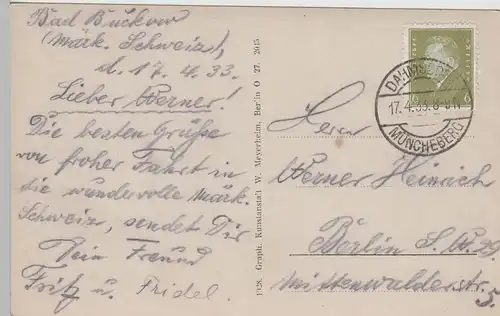 Bad Buckow
(Märk. Schweiz),
d. 17. 4. 33.
Lieber Werner!
Die besten Grüße
von froher Fahrt in
die wundervolle Märk.
Schweiz, sendet Dir
Dein Freund
Fritz u. Fridel.
1928. Graph. Kunstanstalt W. Meyerheim, Berlin O 27. 2015
17.4.33.
MÜNCHEBERG
6
Herrn
Werner Heinrich
Berlin S.W. 29
Mittenwalderstr.
5.